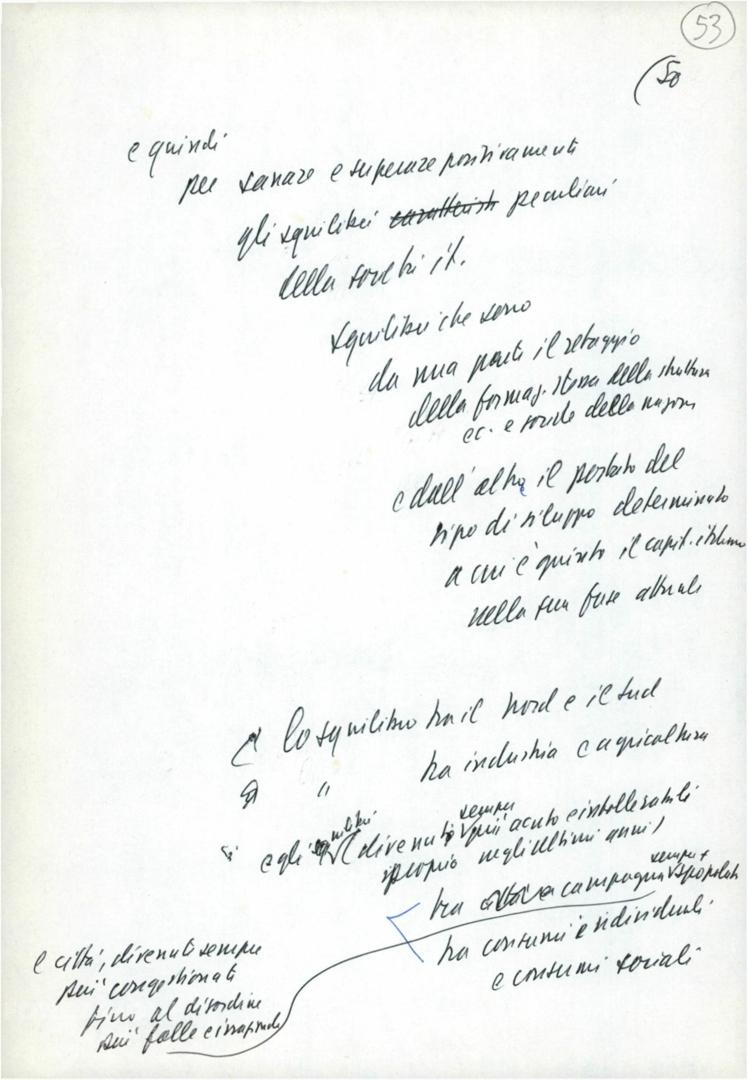 53
(50
e quindi
per sanare e superare positivamente
gli squilibri caratterist peculiari
della società it.
squilibri che sono
da una parte il retaggio
della formaz. storica della struttura
ec. e sociale della nazione
e dall'altra il portato del
tipo di sviluppo determinato
a cui è giunto il capit. italiano
nella sua fase attuale
lo squilibrio tra il Nord e il Sud
" tra industria e agricoltura
squilibri sempre
e gli (divenuti più acuto e intollerabili
proprio negli ultimi anni)
sempre +
tra campagna spopolata
tra consumi individuali
e consumi sociali
e città, divenuti sempre
più congestionati
fino al disordine
più folle e irrazionale